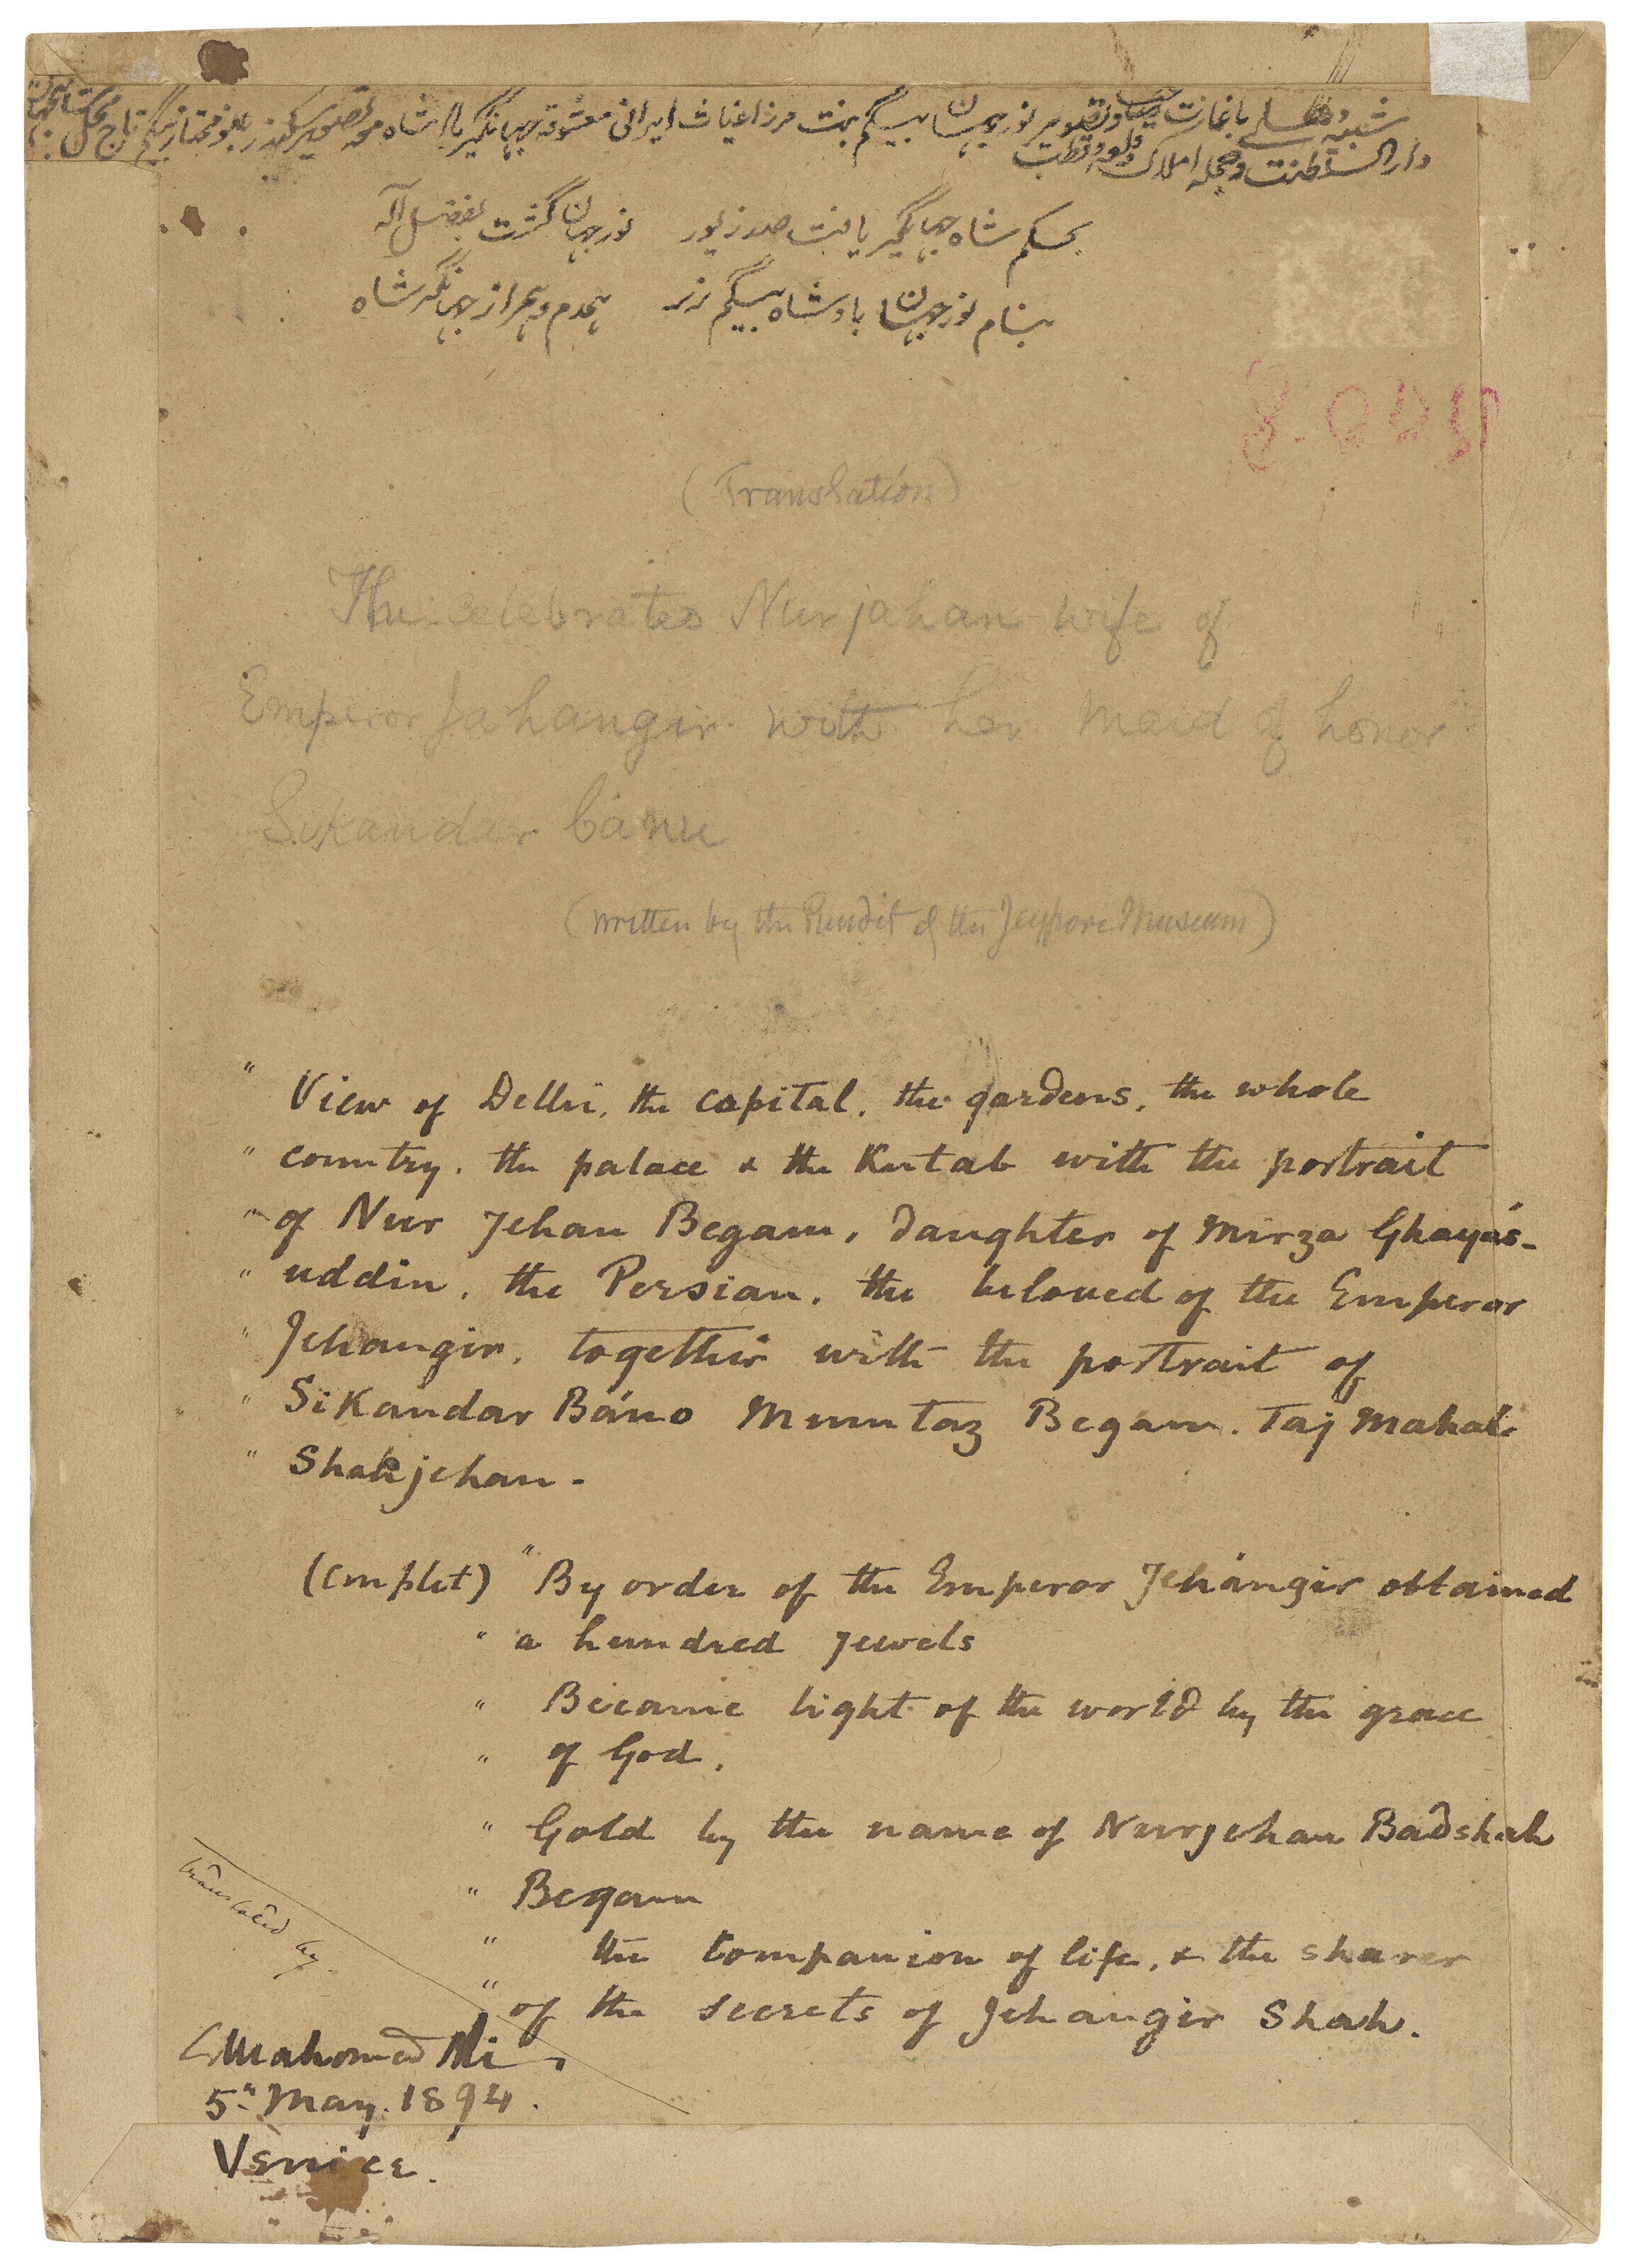 شبیه دهلی باغات و تصویر نور جهان بیگم بنت مرزا غیاث ایرانی معشوقه جهانگیر بادشاه معه تصویر سکندر بانو ممتاز بیگم تاج محل شاهجهان
دار السلطنت وجمله املاک و قلعه و قطب
بحکم شاه جهانگیر یافت صد زیور نور جهان گشت بفضل اله
بنام نور جهان بادشاه بیگم زر همدم و همراز جهانگیر شاه
(Translation)
The celebrated Nurjahan wife of
Emperor Jahangir with her maid of honor
Sikandar banu
(written by the Pundit of the Jeypore Museum)
" View of Delhi, the capital, the gardens, the whole
" country, the palace & the Kutab with the portrait
" of Nur Jehan Begam, daughter of Mirza Ghayás-
" uddin, the Persian, the beloved of the Emperor
" Jehangir, together with the portrait of
" Sikandar Báno Mumtaz Begam. Taj Mahal.
" Shahjehan -
(Cmplet) " By order of the Emperor Jehángir obtained
" a hundred jewels
" Became light of the world by the grace
" of God,
" Gold by the name of Nurjehan Badshah
" Begam
" the companion of life, & the sharer
" of the secrets of Jehangir Shah.
translated by
Mahomed Ali
5" May. 1894.
Venice.